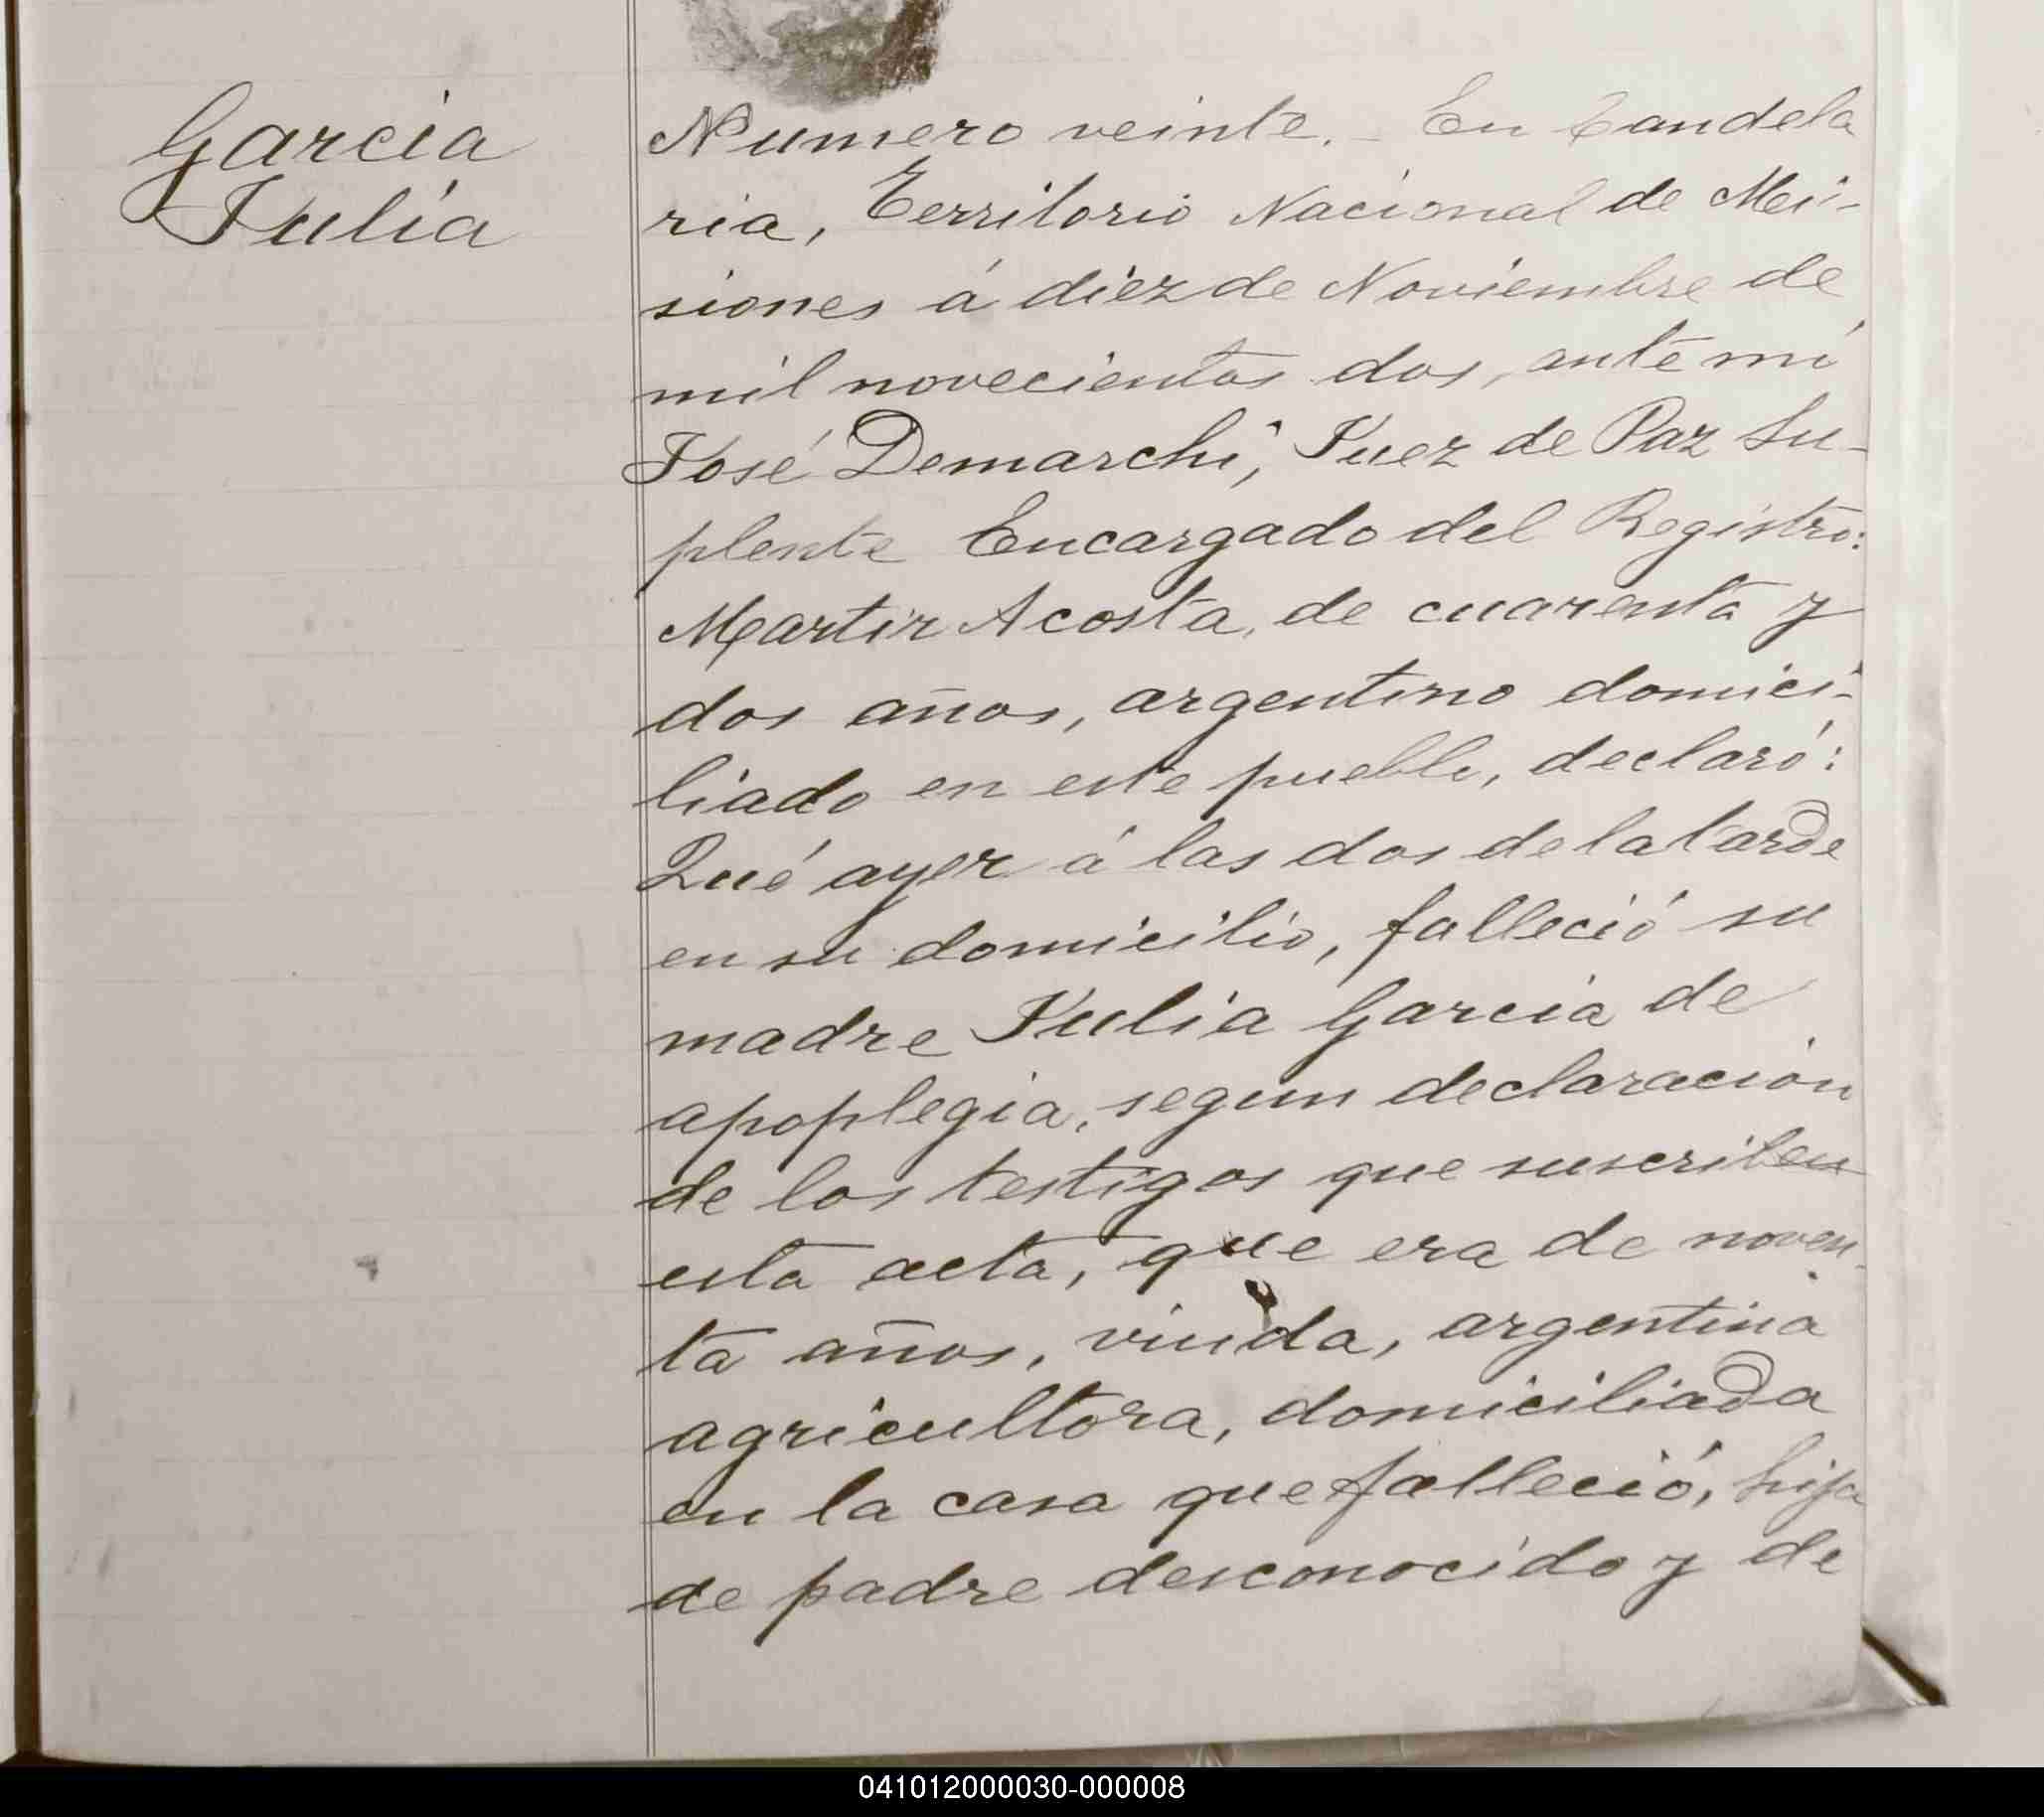 Garcia
Julia
Numero veinte. - En Candela
ria, Territorio Nacional de Mi-
siones á diez de Noviembre de
mil novecientos dos, ante mi
José Demarchi, Juez de Paz Su-
plente Encargado del Registro:
Martir Acosta, de cuarenta y
dos años, argentino domici-
liado en este pueblo, declaró:
Qué ayer á las dos de la tarde
en su domicilio, falleció su
madre Julia Garcia de
apoplegia, segun declaración
de los testigos que suscriben
esta acta, que era de noven-
ta años, viuda, argentina
agricultora, domiciliada
en la casa que falleció, hija
de padre desconocido y de
041012000030-000008